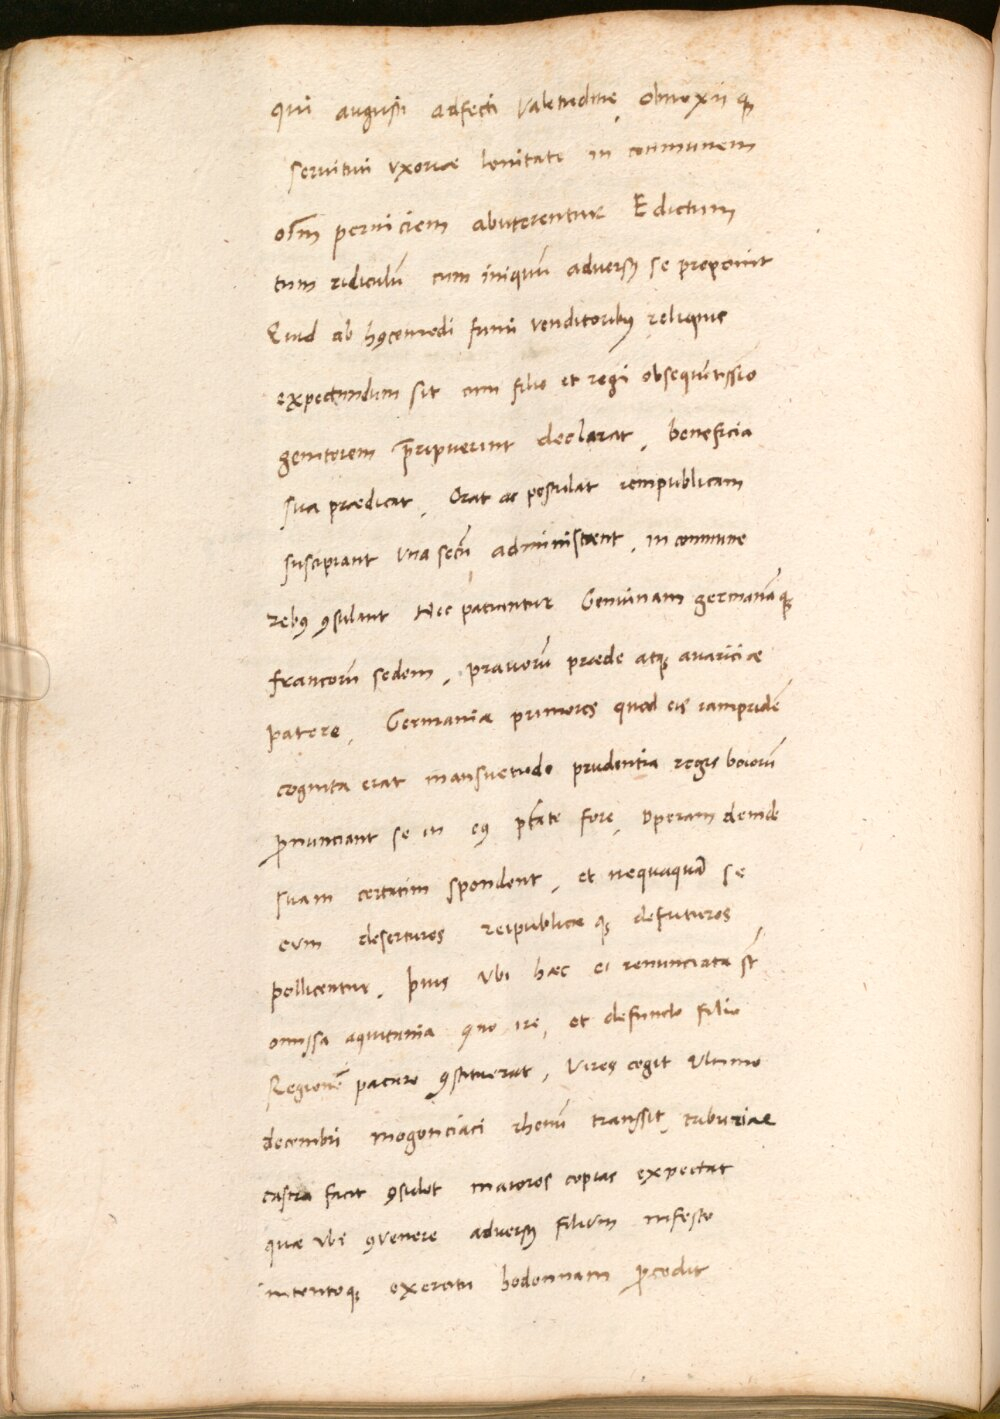 qui augusti adfecti Valetudine, obnoxii q̨
servitiu vxoriae lenitate in communem
oīm perniciem abuterentur Edictum
tum ridiculū cum iniquū adversꝰ se proponit
Quid ab hꝰcemodi fumi venditoribꝰ reliquis
expectundum sit cum filio et regi obsequētissio
genitorem p̄ripuerint declarat, beneficia
sua praedicat, Orat ac postulat rempublicam
suscipiant vna secū administrent, in commune
rebꝰ ꝯsulant Nec patiantur Geminam germanāq̨
francorū sedem, pravorū praede atq̨ avariciae
patere, Germaniae primores quod eis iampridē
cognita erat mansuetudo prudentia regis boiorū
ꝓnunciant se in eꝰ ptāte fore, Operam deinde
suam certatim spondent, et nequaquā se
eum deserturos reipublicae q̨ defuturos
pollicentur, Pius Vbi haec ei renunciata sūt
omissa aquitania quo ire, et defuncto filio
Regionē pacare ꝯstituerat, Vires cogit Vltimo
decembri mogonciaci rhenū transsit, triburiae
castra facit ꝯsulot maiores copias expectat
quae vbi ꝯvenere adversꝰ filium infesto
intentoq̨ exercitu bodonnam ꝓcedit